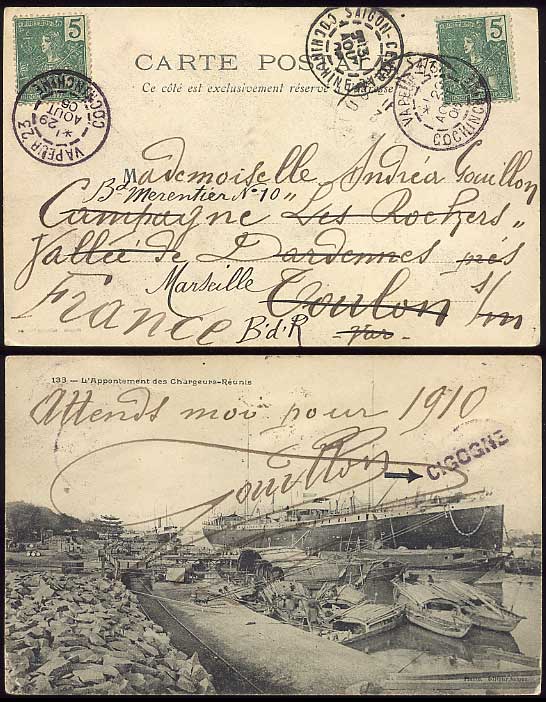 5
5
CARTE POSTALE
Ce côté est exclusivement réservé à l'adresse
VAPEUR 23
29
AOUT
COCHINCHINE
SAIGON-CENTRAL
COCHINCHINE
COCHINCHINE
Mademoiselle Andréa Gouillon
Bd Merentier N° 10
Campagne "Les Rochers"
Vallée de Dardennes près
Marseille Toulon s/m
France B.d.R Var
133 — L'Appontement des Chargeurs-Réunis
Attends moi pour 1910
Gouillon
CIGOGNE